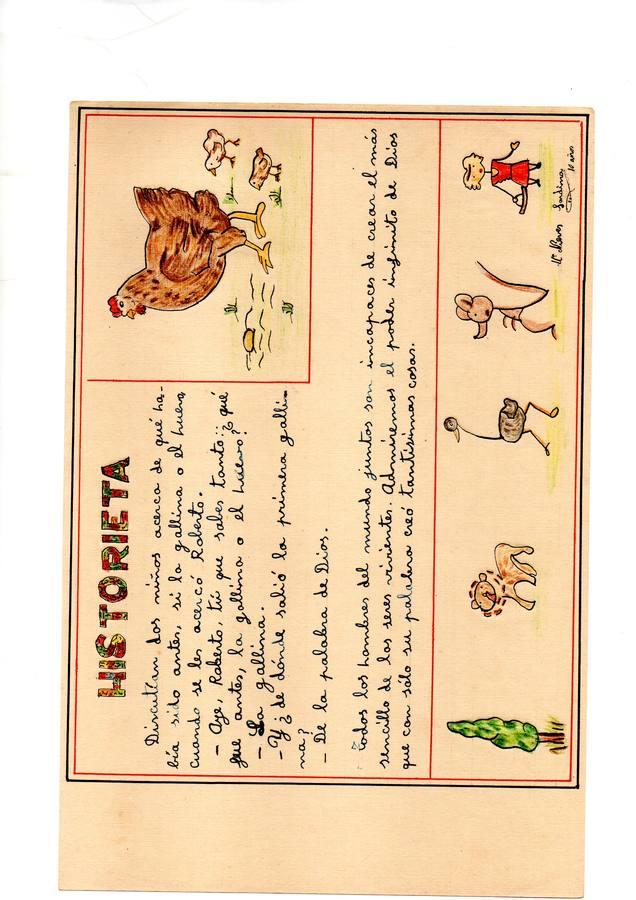 HISTORIETA
Discutían dos niños acerca de qué ha-
bía sido antes, si la gallina o el huevo,
cuando se les acercó Roberto.
- Oye, Roberto, tú que sabes tanto: ¿qué
fue antes, la gallina o el huevo?
- La gallina.
- Y ¿de dónde salió la primera galli-
na?
- De la palabra de Dios.
Todos los hombres del mundo juntos son incapaces de crear el más
sencillo de los seres vivientes. Admiremos el poder infinito de Dios
que con sólo su palabra creó tantísimas cosas.
Mª Nieves Sardina
10 años